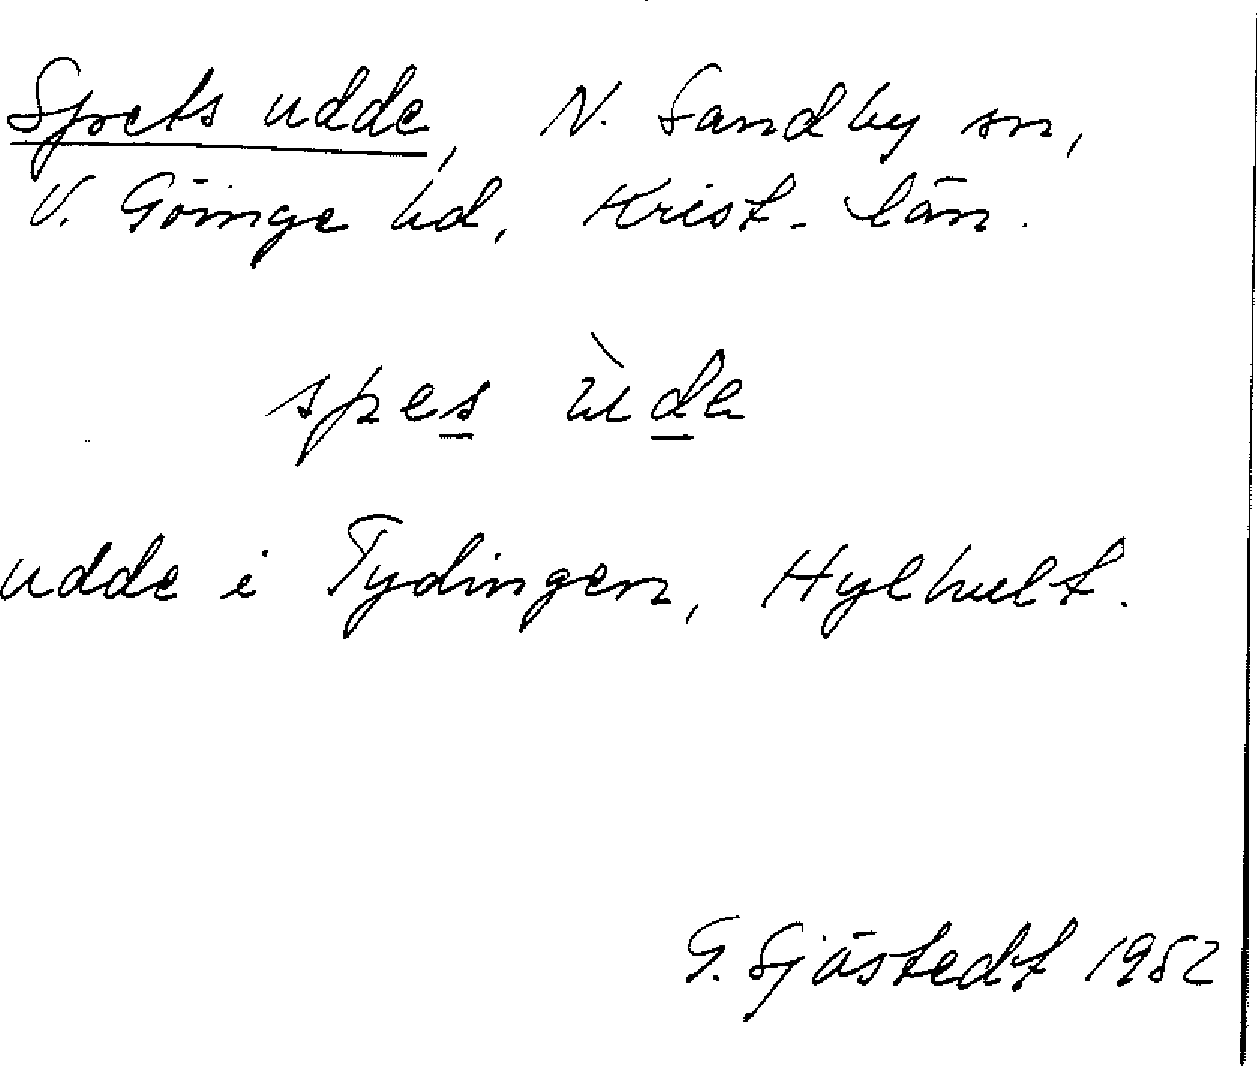 Spets udde, N. Sandby sn,
V. Göinge hd, Krist. län.
spes ùde
udde i Tydingen, Hylhult.
G. Sjöstedt 1952